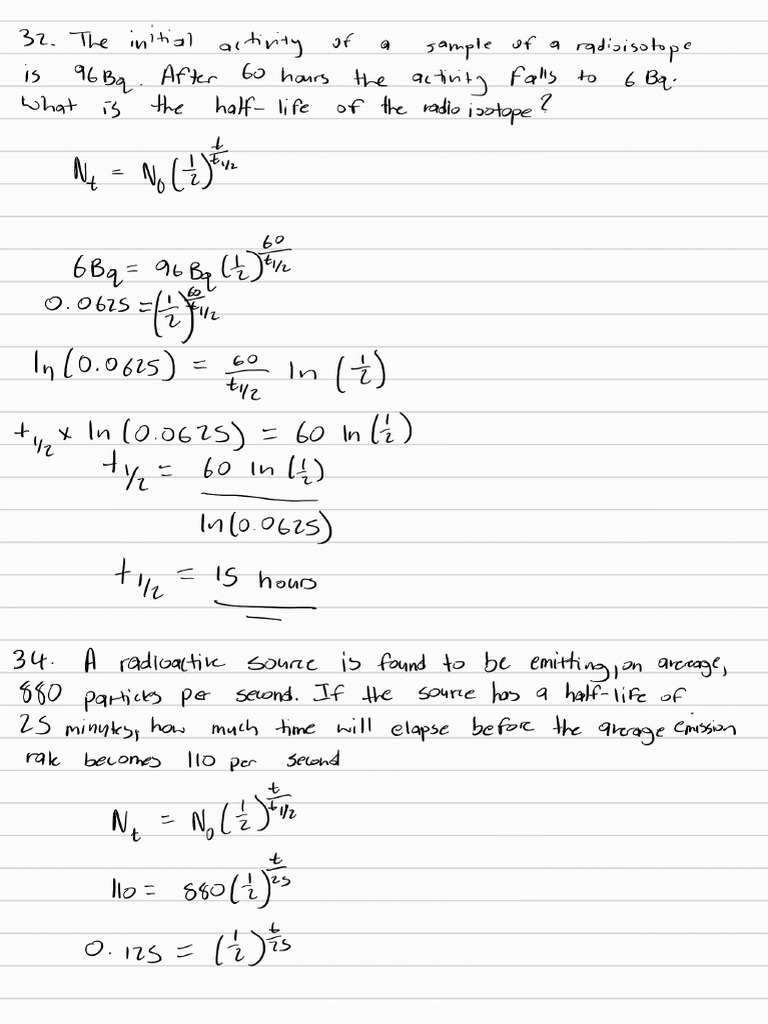 32. The initial activity of a sample of a radioisotope
is 96Bq. After 60 hours the activity falls to 6 Bq.
What is the half-life of the radio isotope?
N_t = N_0 (1/2)^(t/t_1/2)
6Bq = 96 Bq (1/2)^(60/t_1/2)
0.0625 = (1/2)^(60/t_1/2)
ln(0.0625) = 60/t_1/2 ln (1/2)
t_1/2 × ln(0.0625) = 60 ln(1/2)
t_1/2 = 60 ln(1/2)
ln(0.0625)
t_1/2 = 15 hours
34. A radioactive source is found to be emitting, on average,
880 particles per second. If the source has a half-life of
25 minutes, how much time will elapse before the average emission
rate becomes 110 per second
N_t = N_0 (1/2)^(t/t_1/2)
110 = 880 (1/2)^(t/25)
0.125 = (1/2)^(t/25)